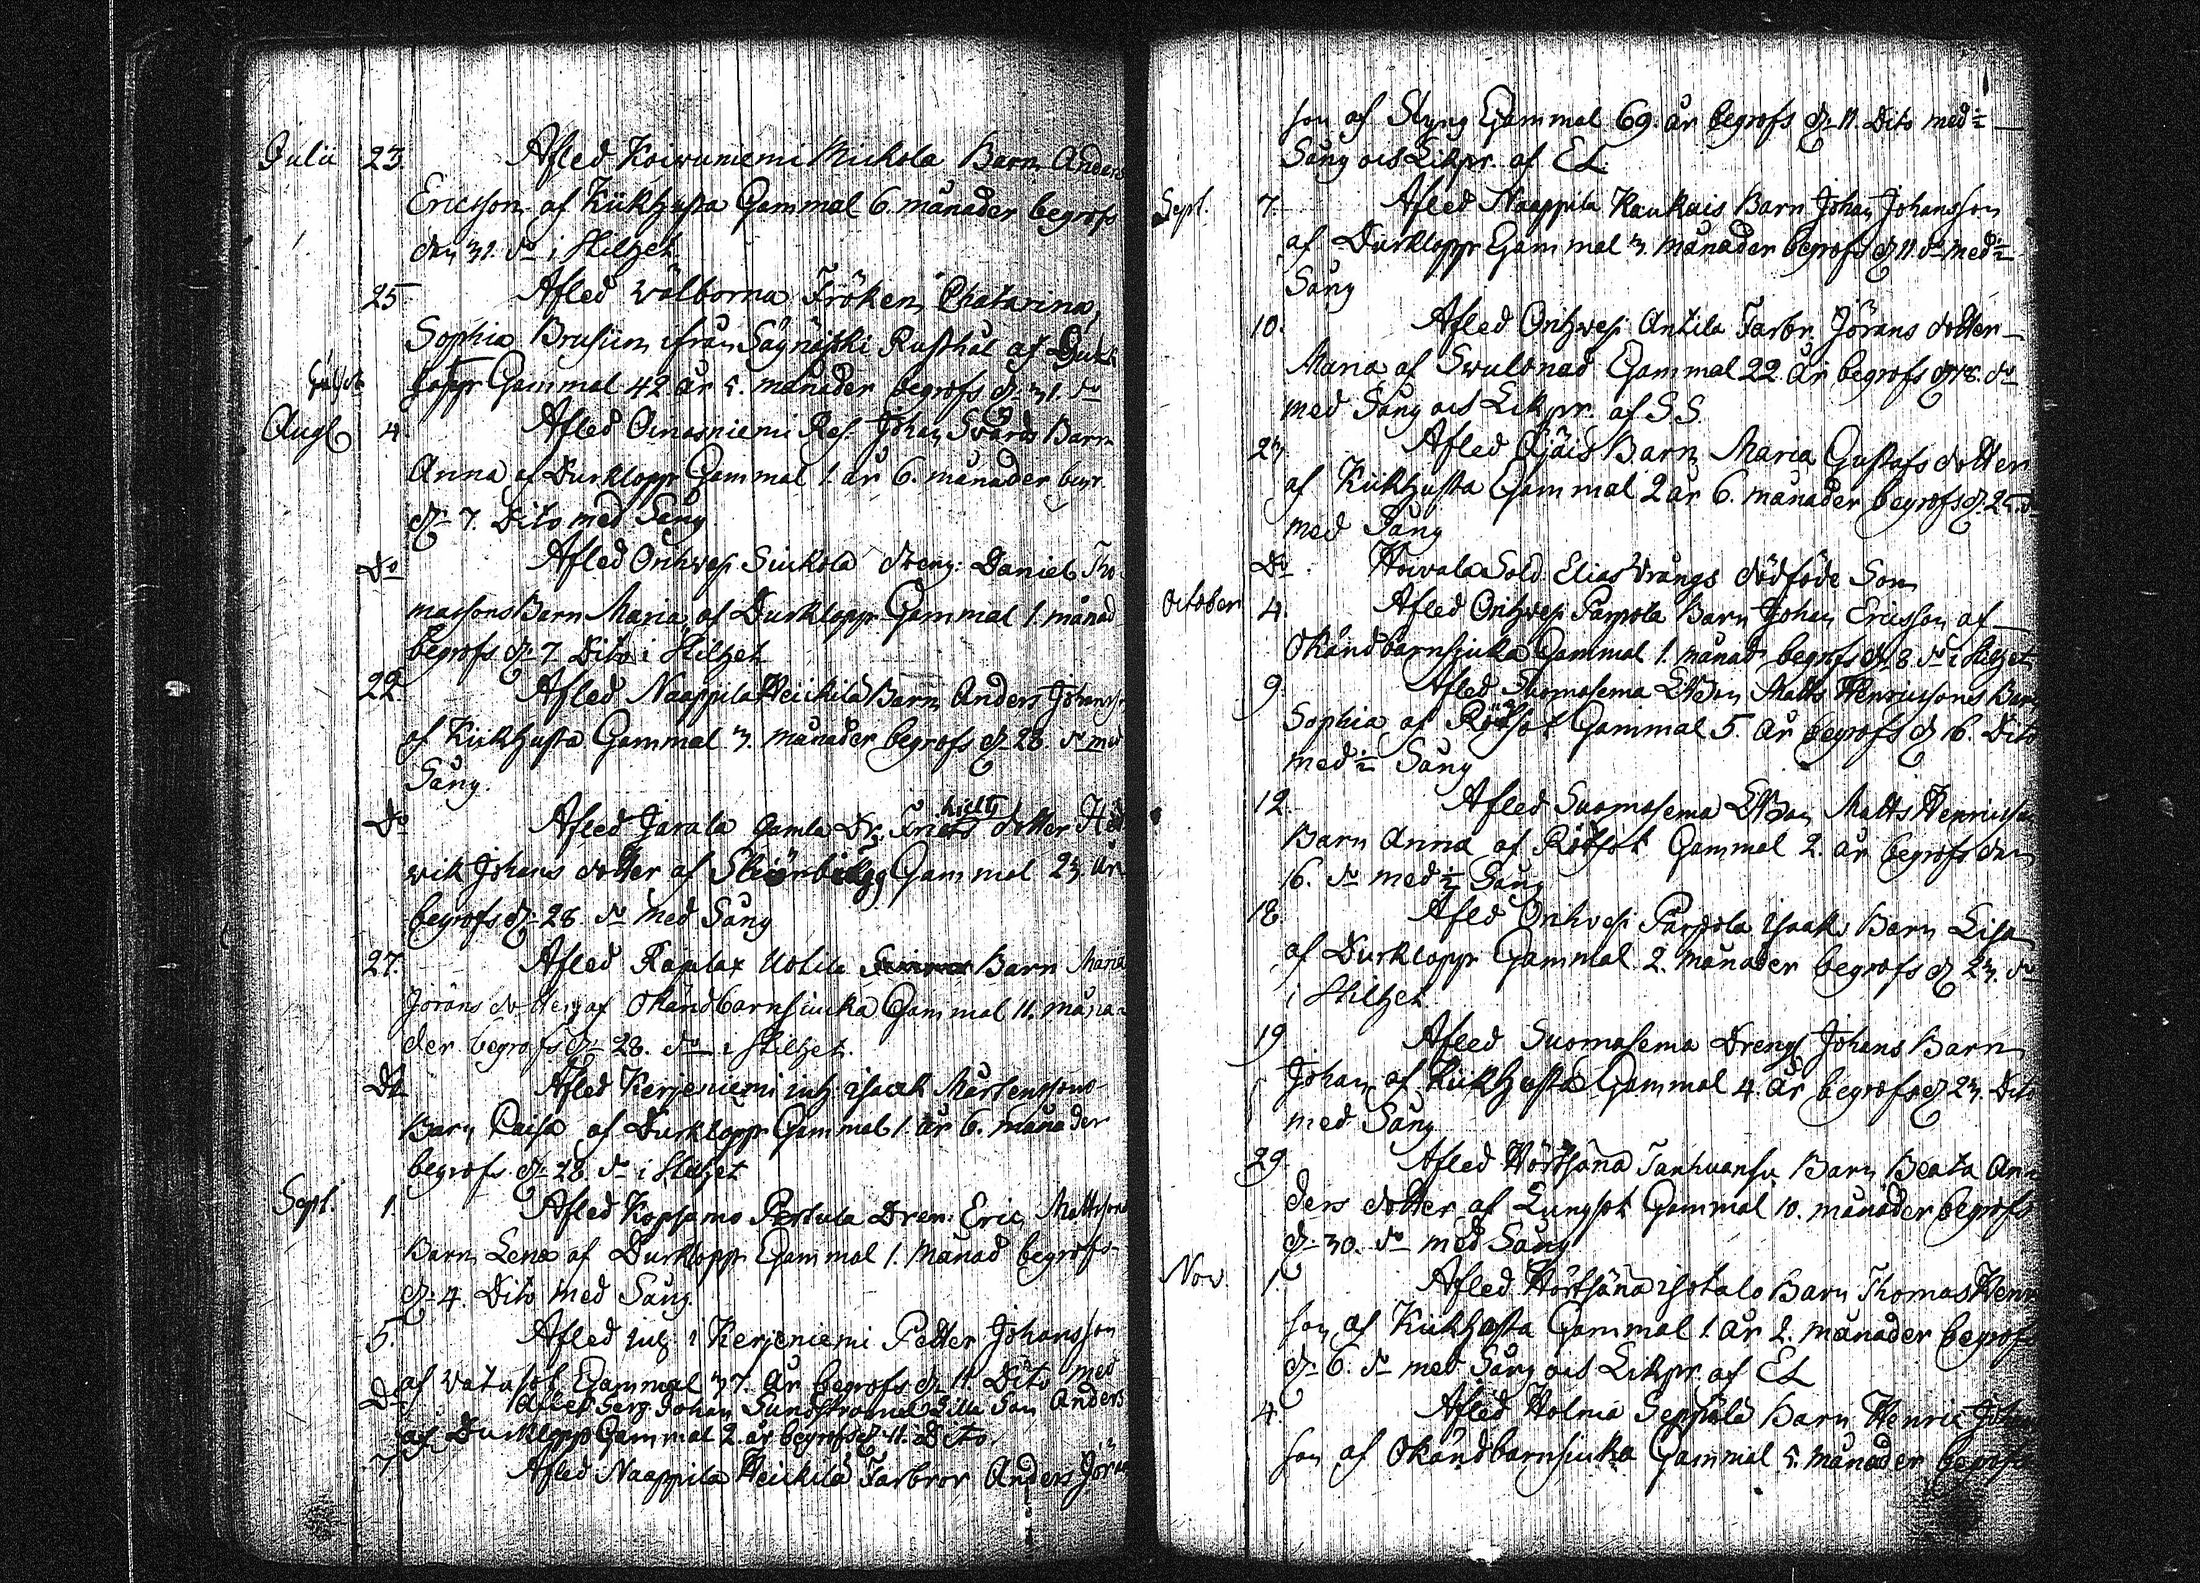 Julii 23. Afled Koivuniemi Mickola Barn Anders
Ericsson af Kiikhusta Gammal 6. månader begrofs
den 31. do i Stilhet
25 Afled wälborna Fröken Chatarina
Sophia Brusiin ifrån Sägnäjski Rusthål af
Gammal 42 år 5. månader begrofs d. 31. do
Aug 4. Afled Ainasniemi Res. Johan Svärds Barn
Anna af Durklopp Gammal 1. år 6. månader begr.
d. 7. Dito med Sång
Do Afled Onkwesi Siukola dreng. Daniel Tho
massons Barn Maria af Durklopp Gammal 1. månad
begrofs d. 7 Dito i Stilhet
22. Afled Naappila Heickilä Barn Anders Johans
af Kiikhusta Gammal 3. månader begrofs d. 28 do med
Sång
Do Afled Jarala gamla Dr. dotter Hed
wik Johans dotter af Gammal 23. år
begrofs d. 28 do med Sång
27. Afled Rajalax Uotila Barn Maria
Jörans dotter af Okändbarnsiuka Gammal 11. måna-
der begrofs d. 28. do i Stilhet.
Do Afled Kerjeniemi inh. Isaak Mårtenssons
Barn Caisa af Durklopp Gammal 1. år 6. månader
begrofs d. 28. do i Stilhet
Sept. 1. Afled Kopsamo Pertula Dren. Eric Mattsons
Barn Lena af Durklopp Gammal 1. månad begrofs
d. 4. Dito med Sång.
5. Afled inh. i Kerjeniemi Petter Johansson
af watusot Gammal 37. år begrofs d. 11. Dito med
Do Afled Serg. Johan Sundströms lilla Son Anders
af Durklopp Gammal 2. år begrofs d. 11. Dito
7 Afled Naappila Heickilä Farbror Anders Jörans
son af Styng Gammal 69. år begrofs d. 11. Dito med ½
Sång och Likpr. af EL
Sept. 7. Afled Naappila Kaukais Barn Johan Johansson
af Durklopp Gammal 3. månader begrofs d. 11. do med ½
Sång
10. Afled Onkwesi Antila Farbr. Jörans dotter
Maria af Swulönad Gammal 22. år begrofs d. 18. do
med Sång och Likpr. af SS.
23 Afled Äjäis Barn Maria Gustafs dotter
af Kiikhusta Gammal 2 år 6. månader begrofs d. 25. do
med Sång
Do. Howala Sold. Elias Drängs dödföde Son
October 4. Afled Onkwesi Parpola Barn Johan Ericsson af
Okändbarnsiuka Gammal 1. månad begrofs d. 8. do i Stilhet
9 Afled Suomasema Matts Henricssons Barn
Sophia af Rödsot Gammal 5. år begrofs d. 16. Dito
med ½ Sång
12. Afled Suomasema Matts Henricssons
Barn Anna af Rödsot Gammal 2. år begrofs den
16. do med ½ Sång
18. Afled Onkwesi Parpola Isaaks Barn Lisa
af Durklopp Gammal 2. månader begrofs d. 23. do
i Stilhet.
19 Afled Suomasema Drengs Johans Barn
Johan af Kiikhusta Gammal 4. år begrofs d. 23. Dito
med Sång
29. Afled Hörtsänä Tanhuansu Barn Beata An
ders dotter af Lungsot Gammal 10. månader begrofs
d. 30. do med Sång
Nov. 1. Afled Hörtsänä Isotalo Barn Thomas Henr
son af Kiikhosta Gammal 1. år 2. månader begrofs
d. 6. do med Sång och Likpr. af EL
4. Afled Holma Seppälä Barn Henric Johan
son af Okändbarnsiuka Gammal 5. månader begrofs